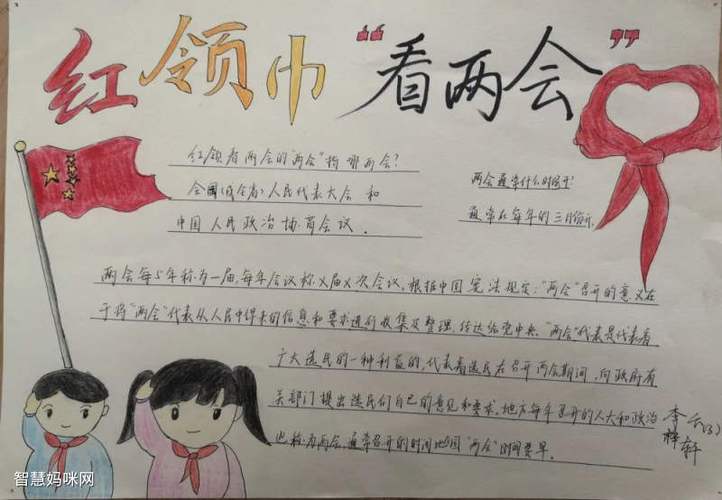 红领巾“看两会”
红领看两会的“两会”指哪两会?
全国(或全省)人民代表大会 和
中国人民政治协商会议.
两会通常什么时间开?
通常在每年的三月份开.
两会每5年称为一届,每年会议称X届X次会议,根据中国宪法规定:“两会”召开的意义在
于将“两会”代表从人民中得来的信息和要求进行收集及整理,传达给党中央.“两会”代表是代表着
广大选民的一种利益的,代表着选民在召开两会期间,向政府有
关部门提出选民们自己的意见和要求.地方每年召开的人大和政治
也称为两会,通常召开的时间比全国“两会”时间要早.
李梓轩
智慧妈咪网